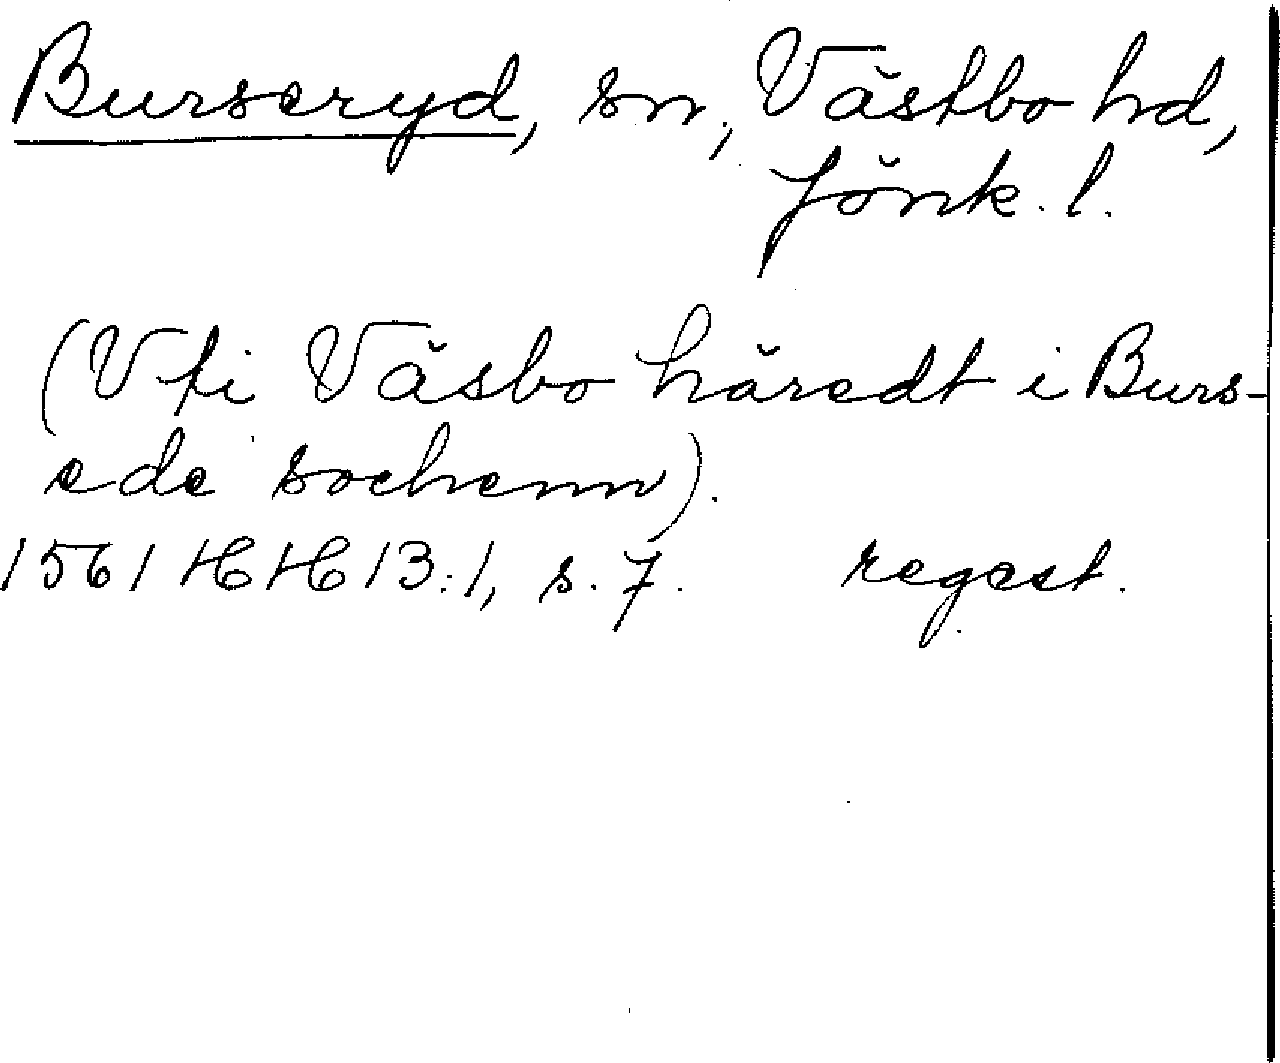 Burseryd, sn, Västbo hd,
Jönk. l.
(Vti Väsbo häredt i Burs-
ede sochenn).
1561 HH 13:1, s. 7. regest.